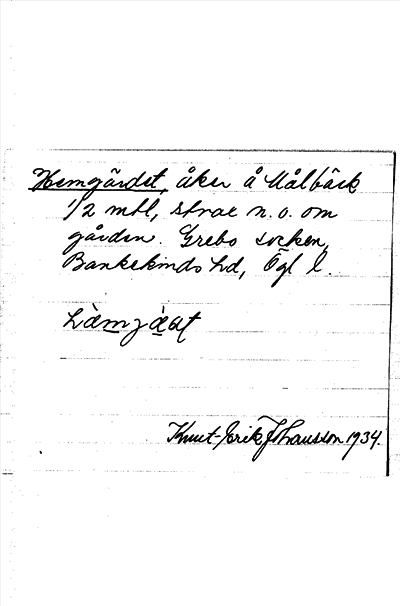 Hemgärdet, åker å Målbäck
1/2 mtl, strax n. o. om
gården. Grebo socken,
Bankekinds hd, Ögl l.
Knut-Erik Johansson 1934.